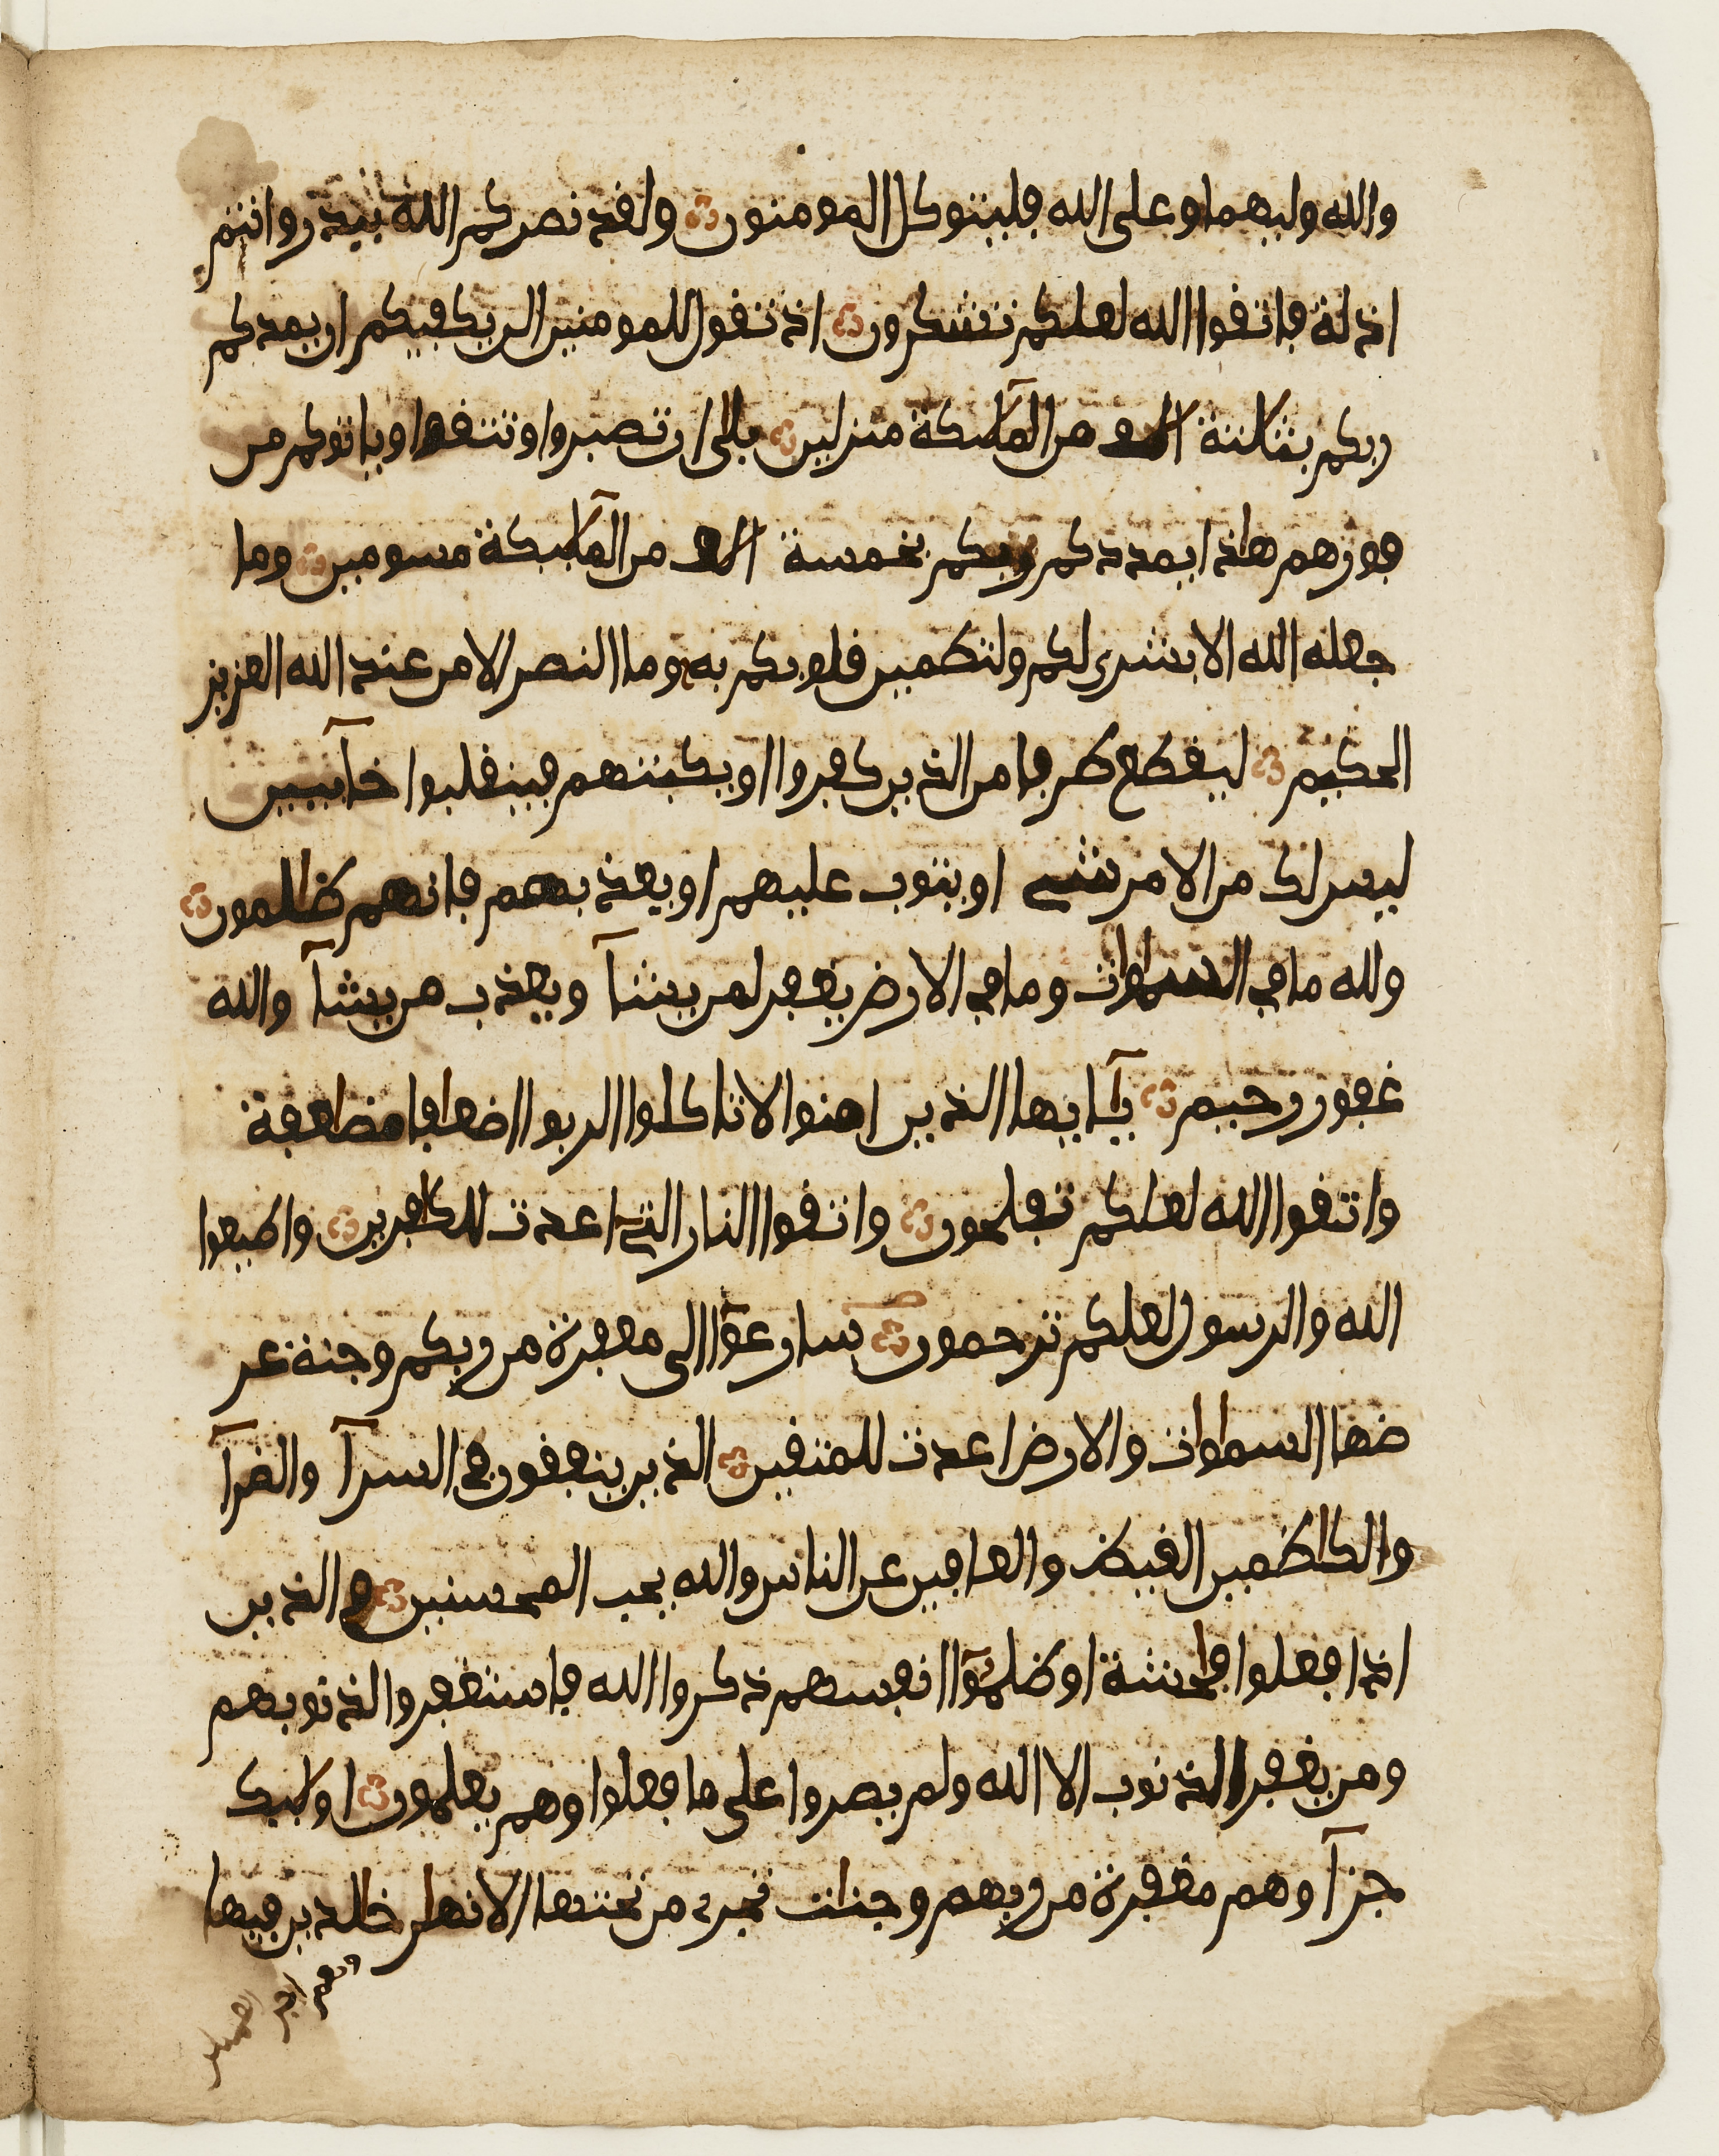 والله وليهما وعلى الله فليتوكل المومنون ولقد نصركم الله ببدر وانتم
اذلة فاتقوا الله لعلكم تشكرون اذ تقول للمومنين الن يكفيكم ان يمدكم
ربكم بثلثة الف من الملٓئكة منزلين بلى ان تصبروا وتتقوا وياتوكم من
فورهم هاذا يمددكم ربكم بخمسة الف من الملٓئكة مسومين وما
جعله الله الا بشرى لكم ولتطمين قلوبكم به وما النصر الا من عند الله العزيز
الحكيم ليقطع طرفا من الذين كفروا او يكبتهم فينقلبوا خآئبين
ليس لك من الامر شيء او يتوب عليهم او يعذبهم فانهم ظالمون
ولله ما في السماوات وما في الارض يغفر لمن يشآ ويعذب من يشآ والله
غفور رحيم يٓايها الذين امنوا لا تاكلوا الربوا اضعافا مضاعفة
واتقوا الله لعلكم تفلحون واتقوا النار التي اعدت للكافرين واطيعوا
الله والرسول لعلكم ترحمون سارعوٓا الى مغفرة من ربكم وجنة عر
ضها السماوات والارض اعدت للمتقين الذين ينفقون في السرآ والضرآ
والكاظمين الغيظ والعافين عن الناس والله يحب المحسنين والذين
اذا فعلوا فاحشة او ظلموٓا انفسهم ذكروا الله فاستغفروا لذنوبهم
ومن يغفر الذنوب الا الله ولم يصروا على ما فعلوا وهم يعلمون اولئك
جزآوهم مغفرة من ربهم وجنات تجري من تحتها الانهار خالدين فيها
ونعم اجر العملين